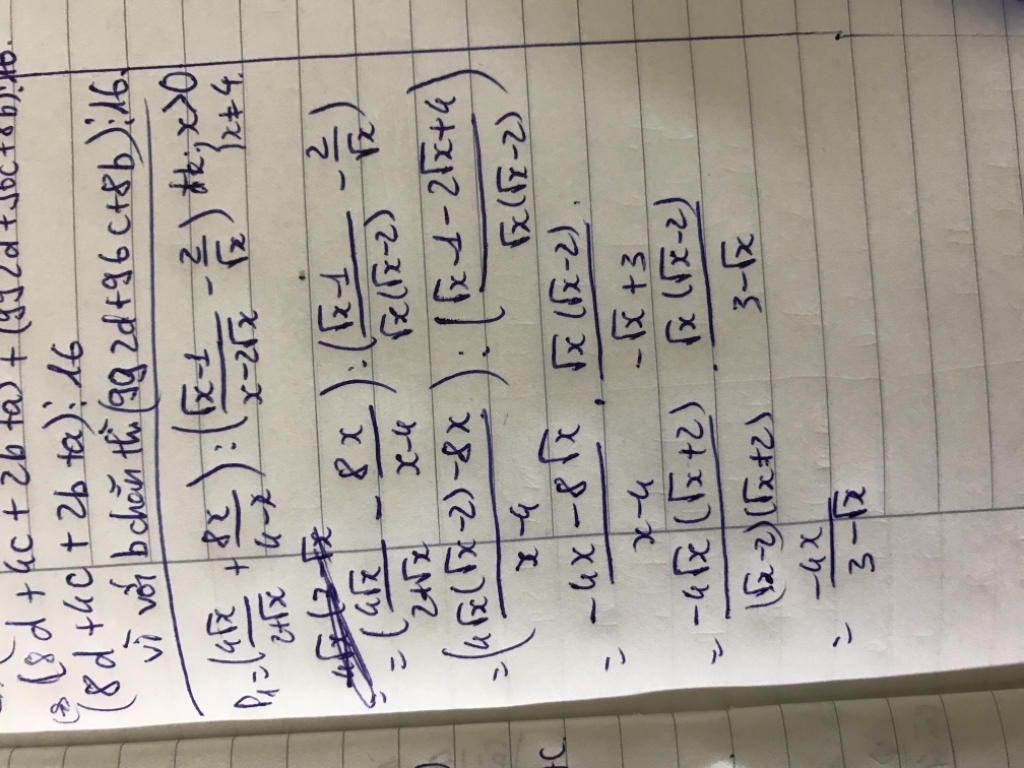 (8d + 4c + 2b + a) + (992d + 96c + 8b) ⋮ 16.
(8d + 4c + 2b + a) ⋮ 16
vì với b chẵn thì (992d + 96c + 8b) ⋮ 16.
P₁ = (4√x/(2+√x) + 8x/(4-x)) : ((√x-1)/(x-2√x) - 2/√x) đk: {x>0 x≠4.
= (4√x/(2+√x) - 8x/(x-4)) : ((√x-1)/(√x(√x-2)) - 2/√x)
= ((4√x(√x-2)-8x)/(x-4)) : ((√x-1-2√x+4)/(√x(√x-2)))
= (-4x-8√x)/(x-4) . (√x(√x-2))/(-√x+3)
= (-4√x(√x+2))/((√x-2)(√x+2)) . (√x(√x-2))/(3-√x)
= -4x/(3-√x)